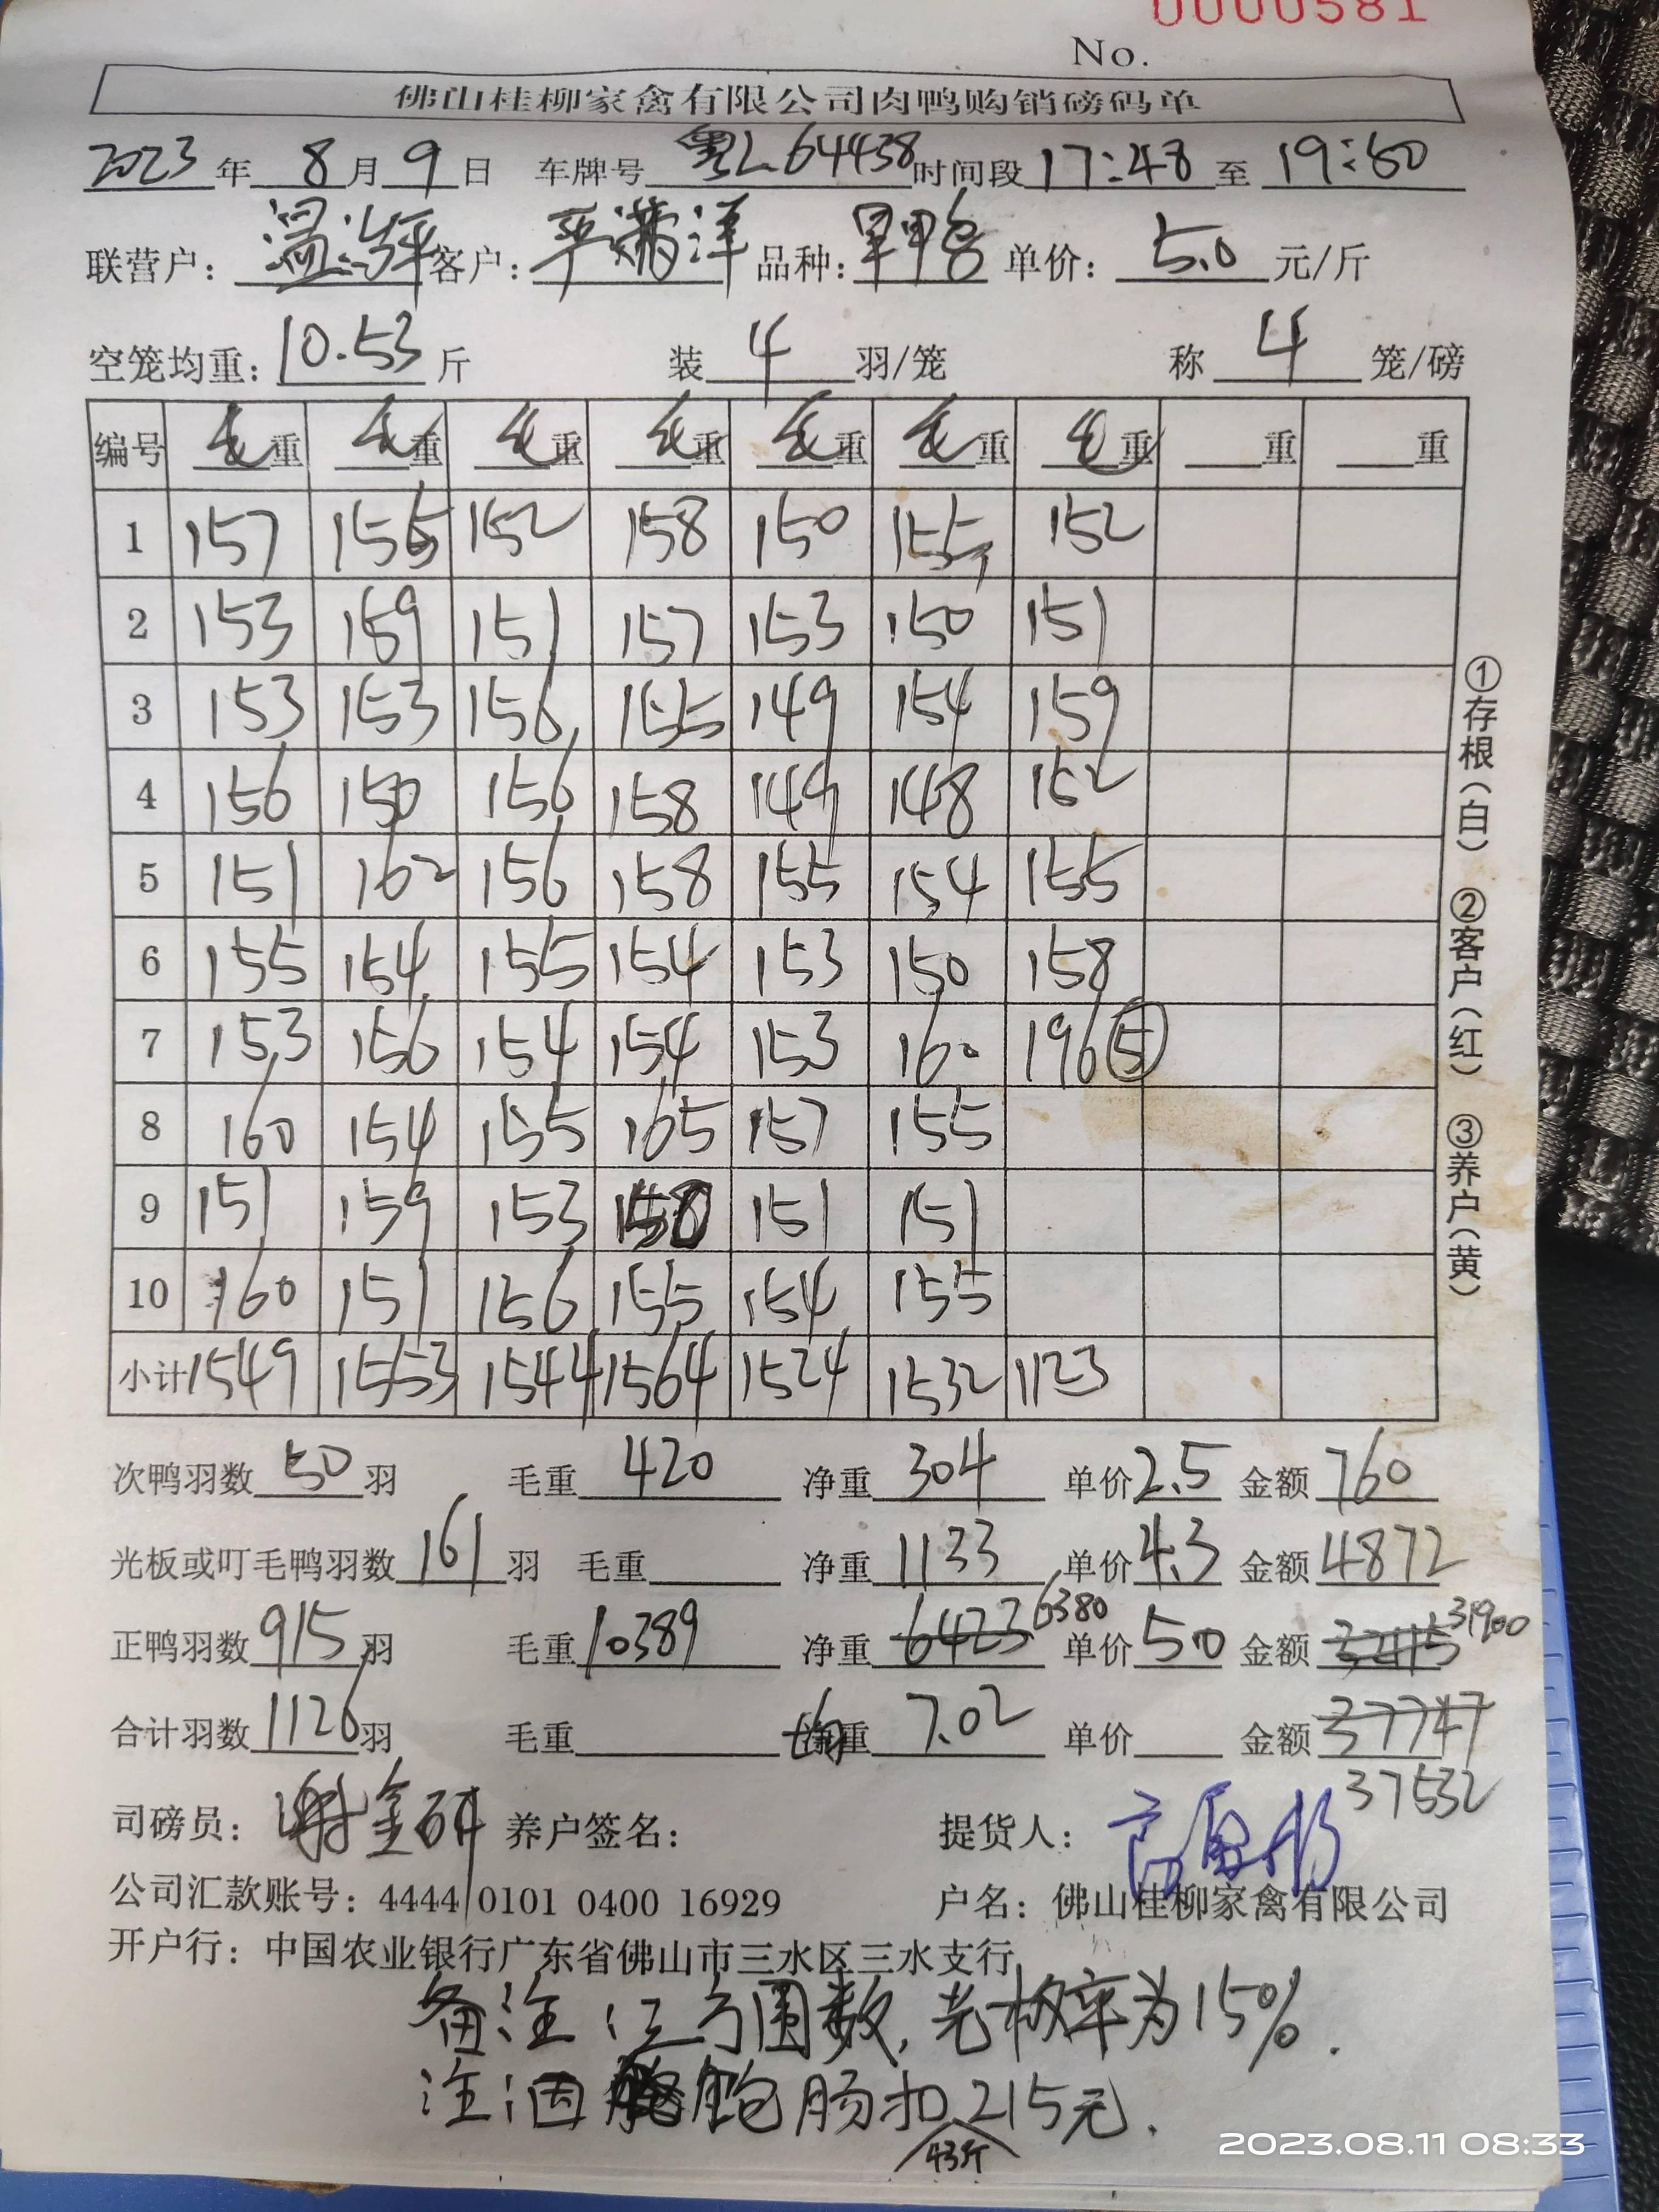 0000581
No.
佛山桂柳家禽有限公司肉鸭购销磅码单
2023年 8月 9日 车牌号 粤L64438 时间段 17:48 至 19:50
联营户: 温 客户: 平满洋 品种: 单价: 5.0 元/斤
空笼均重: 10.53 斤 装 4 羽/笼 称 4 笼/磅
编号 毛重 毛重 毛重 毛重 毛重 毛重 毛重 重 重
1 157 155 152 158 150 155 152
2 153 159 151 157 153 150 151
3 153 153 156 155 149 154 159
4 156 150 156 158 149 148 152
5 151 162 156 158 155 154 155
6 155 154 155 154 153 150 158
7 153 156 154 154 153 160 196⑤
8 160 154 155 165 157 155
9 151 159 153 150 151 151
10 160 151 156 155 154 155
小计 1549 1553 1544 1564 1524 1532 1123
次鸭羽数 50 羽 毛重 420 净重 304 单价 2.5 金额 760
光板或叮毛鸭羽数 161 羽 毛重 净重 1133 单价 4.3 金额 4872
正鸭羽数 915 羽 毛重 10389 净重 6423 6380 单价 5.0 金额 32115 31900
合计羽数 1126 羽 毛重 均重 7.02 单价 金额 37747
37532
司磅员: 谢金研 养户签名: 提货人:
公司汇款账号: 4444 0101 0400 16929 户名: 佛山桂柳家禽有限公司
开户行: 中国农业银行广东省佛山市三水区三水支行
备注: 数, 光板率为15%.
注: 因 肠扣215元.
43斤
①存根(白) ②客户(红) ③养户(黄)
2023.08.11 08:33